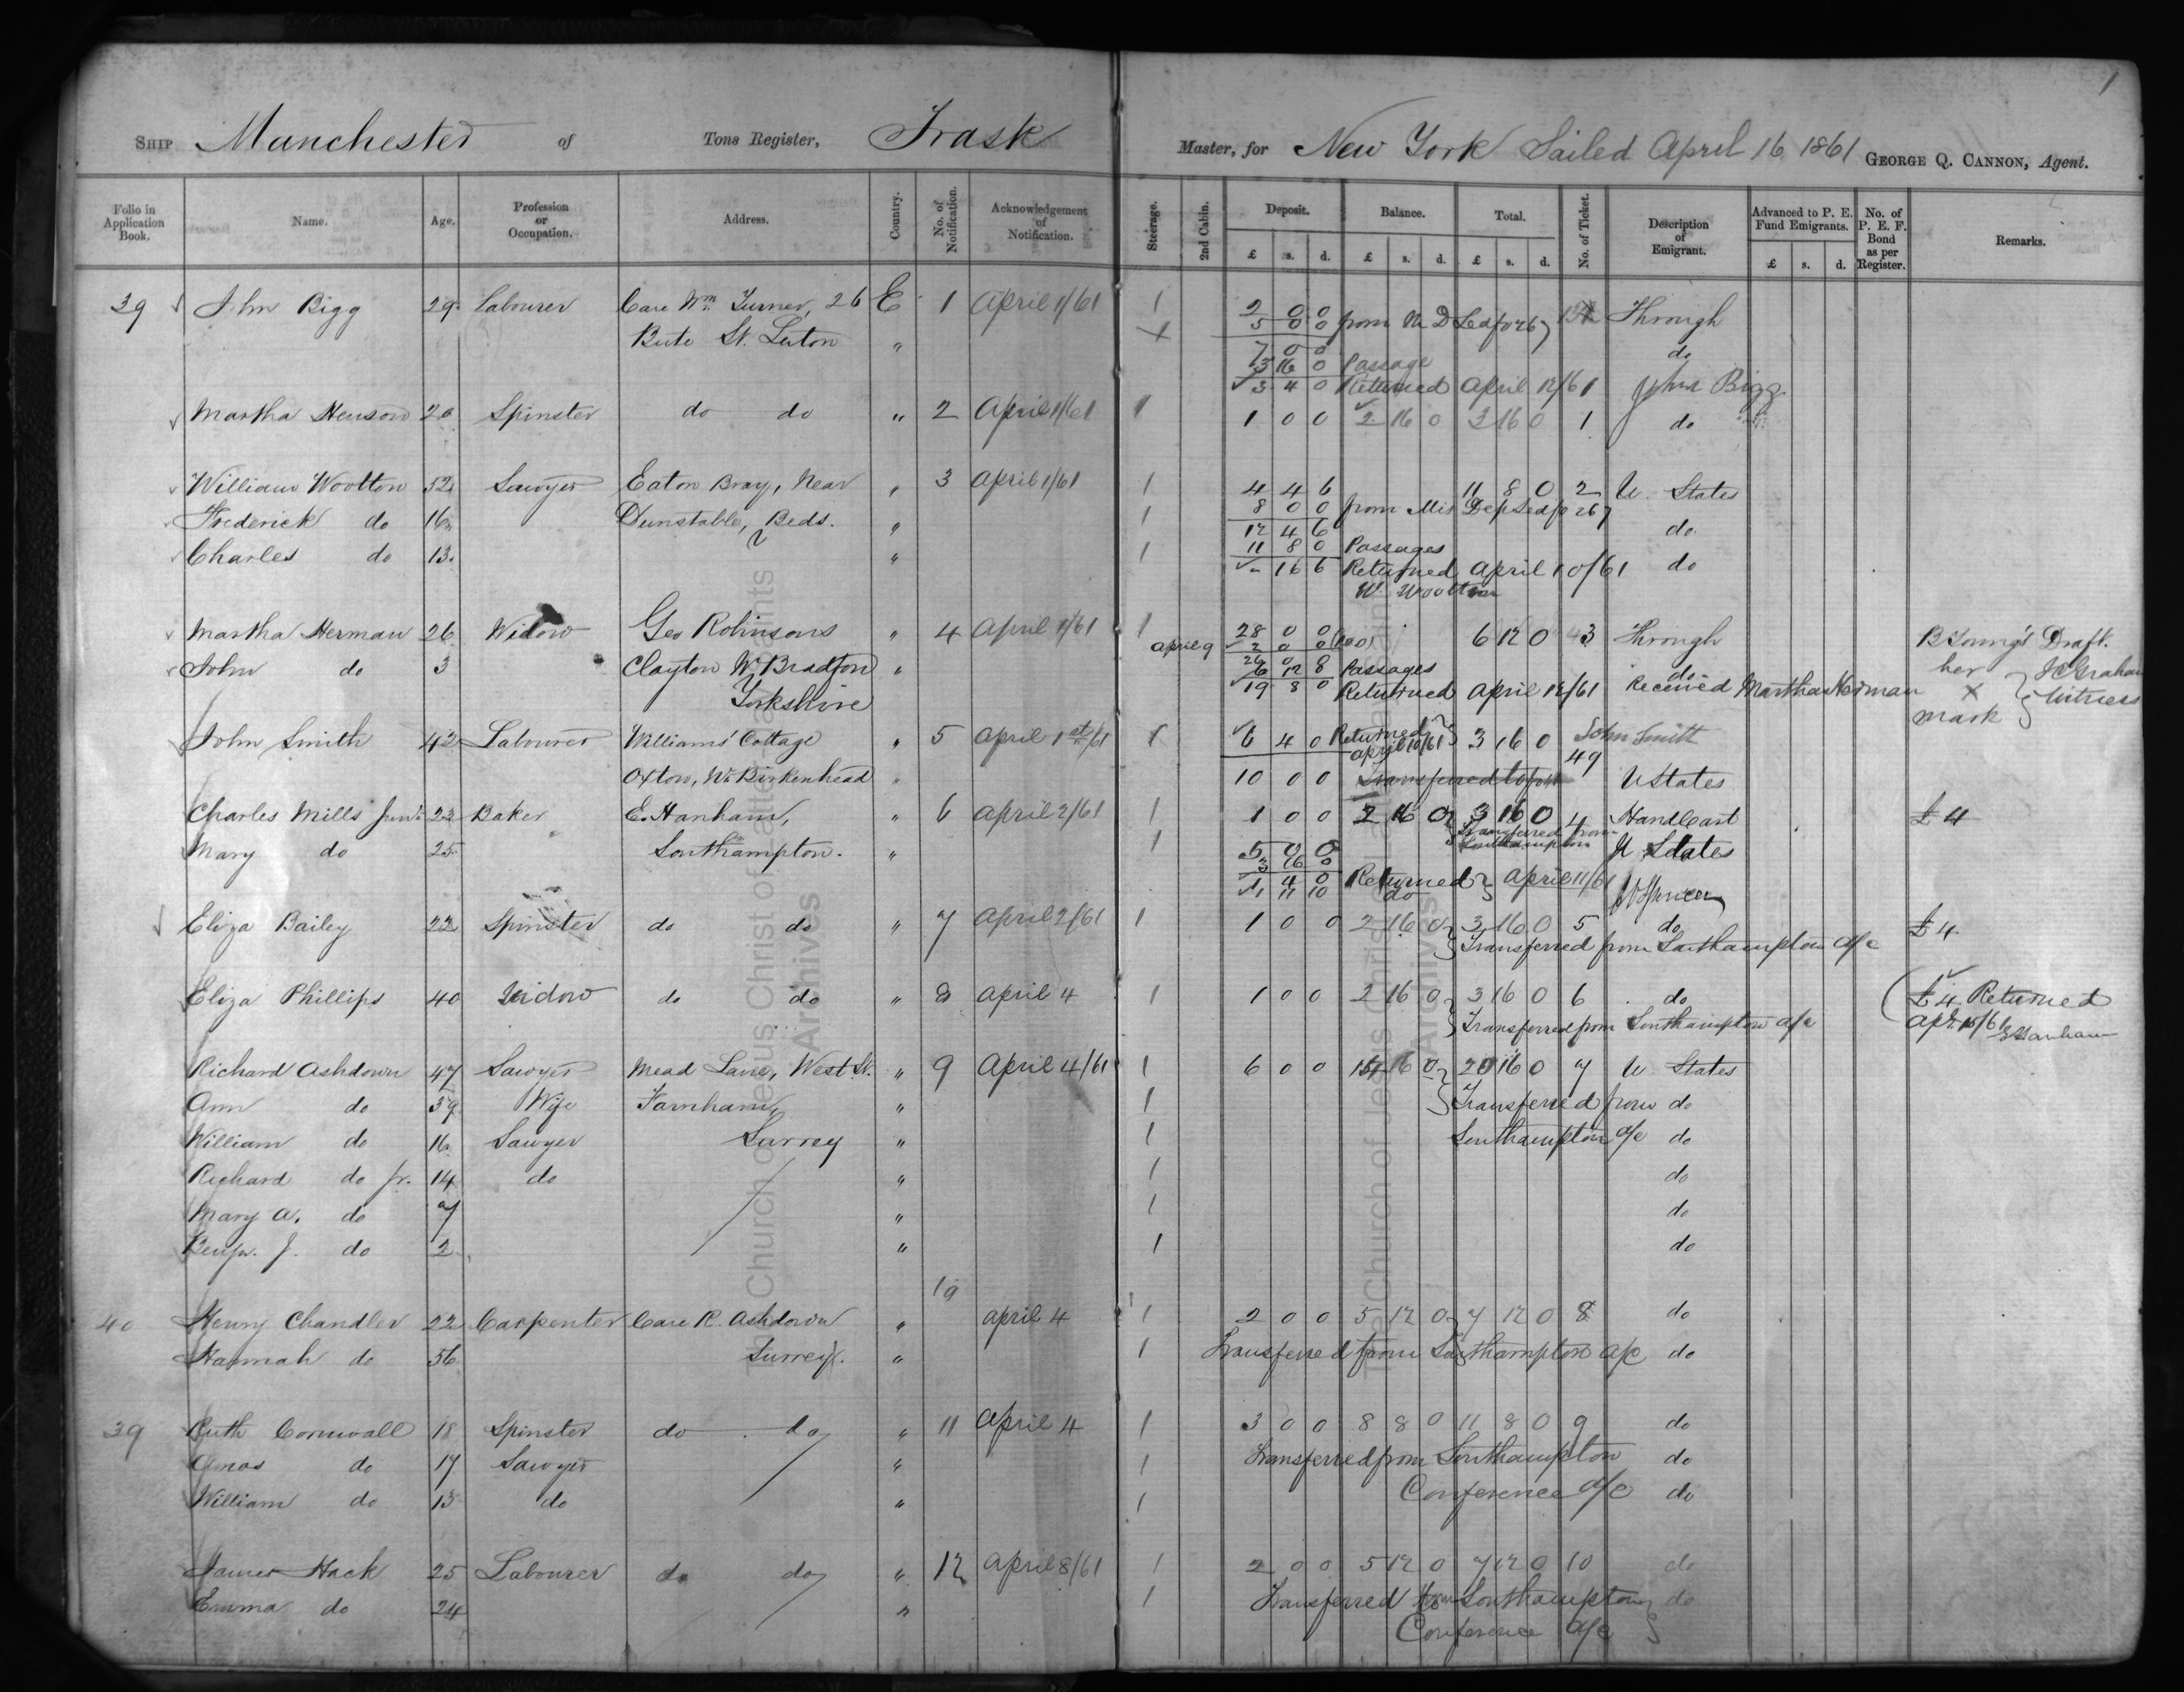 1
SHIP Manchester of Tons Register, Trask Master, for New York Sailed April 16 1861 GEORGE Q. CANNON, Agent.
Folio in Application Book. Name. Age. Profession or Occupation. Address. Country. No. of Notification. Acknowledgement of Notification. Steerage. 2nd Cabin. Deposit. Balance. Total. No. of Ticket. Description of Emigrant. Advanced to P. E. Fund Emigrants. No. of P. E. F. Bond as per Register. Remarks.
£ s. d. £ s. d. £ s. d. £ s. d.
39 John Bigg 29 Labourer Care Wm. Turner, 26 E 1 April 1/61 1 2 0 0 Through
Bute St. Luton " 5 0 0 from
7 0 0 do
3 16 0 Passage
3 4 0 Returned April 12/61 John Bigg
Martha Henson 20 Spinster do do " 2 April 1/61 1 1 0 0 2 16 0 3 16 0 1 do
William Wootton 52 Sawyer Eaton Bray, Near " 3 April 1/61 1 4 4 6 11 8 0 2 U. States
Frederick do 16 Dunstable, Beds. " 1 8 0 0 from Mis Dep Led fo 267
12 4 6 do.
Charles do 13 " 1 11 8 0 Passages
" 16 6 Returned April 10/61 do
W. Wootton
Martha Herman 26 Widow Geo Robinsons " 4 April 1/61 1 28 0 0 6 12 0 43 Through B Young's Draft.
April 9 2 0 0
John do 3 Clayton Nr. Bradford " 26 0 0 do her
6 12 0 Passages
Yorkshire 19 8 0 Returned April 12/61 Received Martha Herman X Witness
mark
John Smith 42 Labourer Williams' Cottage " 5 April 1st/61 1 6 4 0 Returned April 10/61 3 16 0 John Smith
49
Oxton, Nr. Birkenhead " 10 0 0 Transferred to U States
Charles Mills Junr. 22 Baker E. Hanham, " 6 April 2/61 1 1 0 0 2 16 0 3 16 0 4 Handcart £4
Transferred from
Mary do 25 Southampton. " 1 5 0 0 Southampton U States
3 16 0
1 4 0 Returned April 11/61
1 11 10 do
Eliza Bailey 22 Spinster do do " 7 April 2/61 1 1 0 0 2 16 0 3 16 0 5 do £4
Transferred from Southampton a/c
Eliza Phillips 40 Widow do do " 8 April 4 1 1 0 0 2 16 0 3 16 0 6 do £4 Returned
Transferred from Southampton a/c Apr. 15/61 E Hanham
Richard Ashdown 47 Sawyer Mead Lane, West St. " 9 April 4/61 1 6 0 0 14 16 0 20 16 0 7 U. States
Ann do 39 Wife Farnham, " 1 Transferred from do
William do 16 Sawyer Surrey " 1 Southampton a/c do
Richard do jr. 14 do " 1 do
Mary A. do 7 " 1 do
Benjn. J. do 2 " 1 do
10
40 Henry Chandler 22 Carpenter Care R. Ashdown " April 4 1 2 0 0 5 12 0 7 12 0 8 do
Hannah do 56 Surrey. " 1 Transferred from Southampton a/c do
39 Ruth Cornwall 18 Spinster do do " 11 April 4 1 3 0 0 8 8 0 11 8 0 9 do
Amos do 17 Sawyer " 1 Transferred from Southampton do
William do 15 do " 1 Conference a/c do
James Hack 25 Labourer do do " 12 April 8/61 1 2 0 0 5 12 0 7 12 0 10 do
Emma do 24 " 1 Transferred from Southampton do
Conference a/c
The Church of Jesus Christ of Latter-day Saints
Archives
The Church of Jesus Christ of Latter-day Saints
Archives